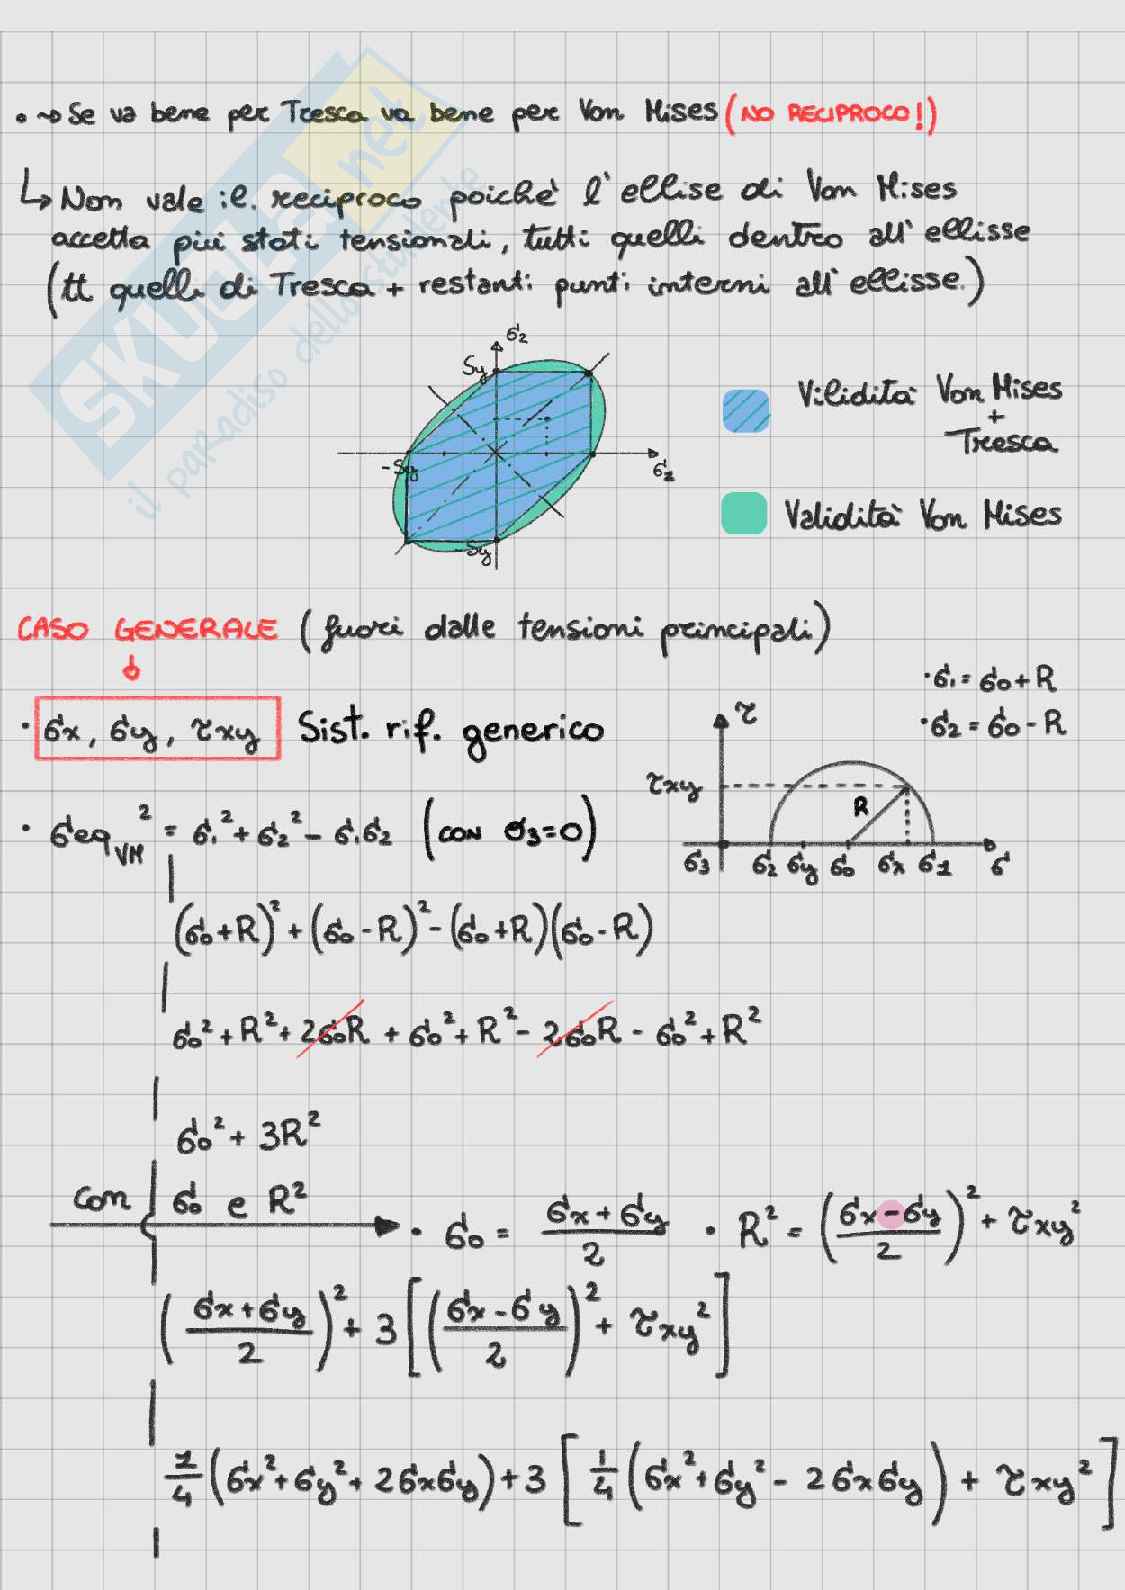 • ~> Se va bene per Tresca va bene per Von Mises (NO RECIPROCO!)
↳ Non vale il. reciproco poichè l'ellise di Von Mises
accetta più stati tensionali, tutti quelli dentro all'ellisse
(tt quelli di Tresca + restanti punti interni all'ellisse.)
SKUOLA.net
il paradiso dello studente
σ2
Sy
-Sy
σ2
-Sy
Vilidità Von Mises
+
Tresca
Validità Von Mises
CASO GENERALE (fuori dalle tensioni principali)
• σx, σy, τxy Sist. rif. generico
• σ1 = σ0 + R
• σ2 = σ0 - R
τ
τxy
R
σ3 σ2 σy σ0 σx σ1 σ
• σeq_VM² = σ1² + σ2² - σ1σ2 (con σ3=0)
(σ0+R)² + (σ0-R)² - (σ0+R)(σ0-R)
σ0² + R² + 2σ0R + σ0² + R² - 2σ0R - σ0² + R²
σ0² + 3R²
con σ0 e R² • σ0 = (σx + σy)/2 • R² = ((σx - σy)/2)² + τxy²
((σx + σy)/2)² + 3[((σx - σy)/2)² + τxy²]
1/4 (σx² + σy² + 2σxσy) + 3[1/4 (σx² + σy² - 2σxσy) + τxy²]